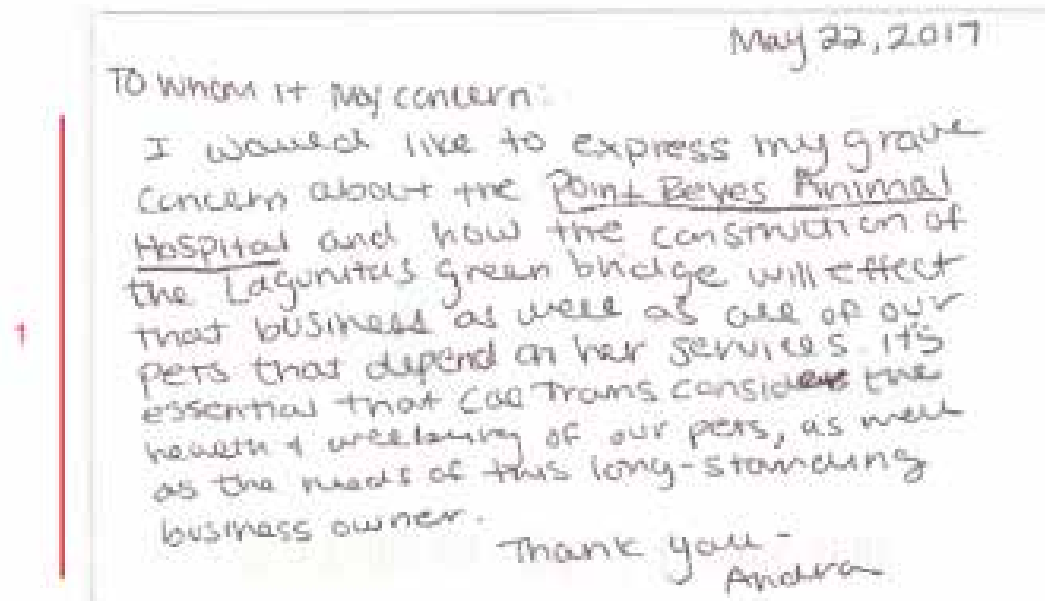 May 22, 2017
To Whom it May concern:
I would like to express my grave
concern about the Point Reyes Animal
Hospital and how the construction of
the Lagunitas green bridge will effect
that business as well as all of our
pets that depend on her services. it's
essential that CalTrans consider the
health & wellbeing of our pets, as well
as the needs of this long-standing
business owner.
Thank you -
Andra
1